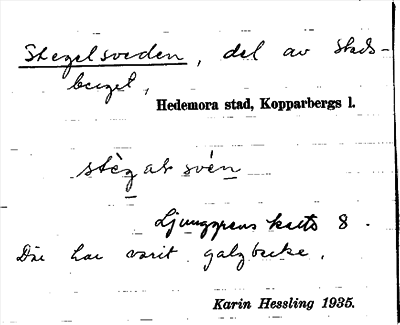 Stegelsveden, del av Stads-
berget,
Hedemora stad, Kopparbergs l.
stèg al svén
Ljunggrens karta 8.
Där har varit galgbacke.
Karin Hessling 1935.